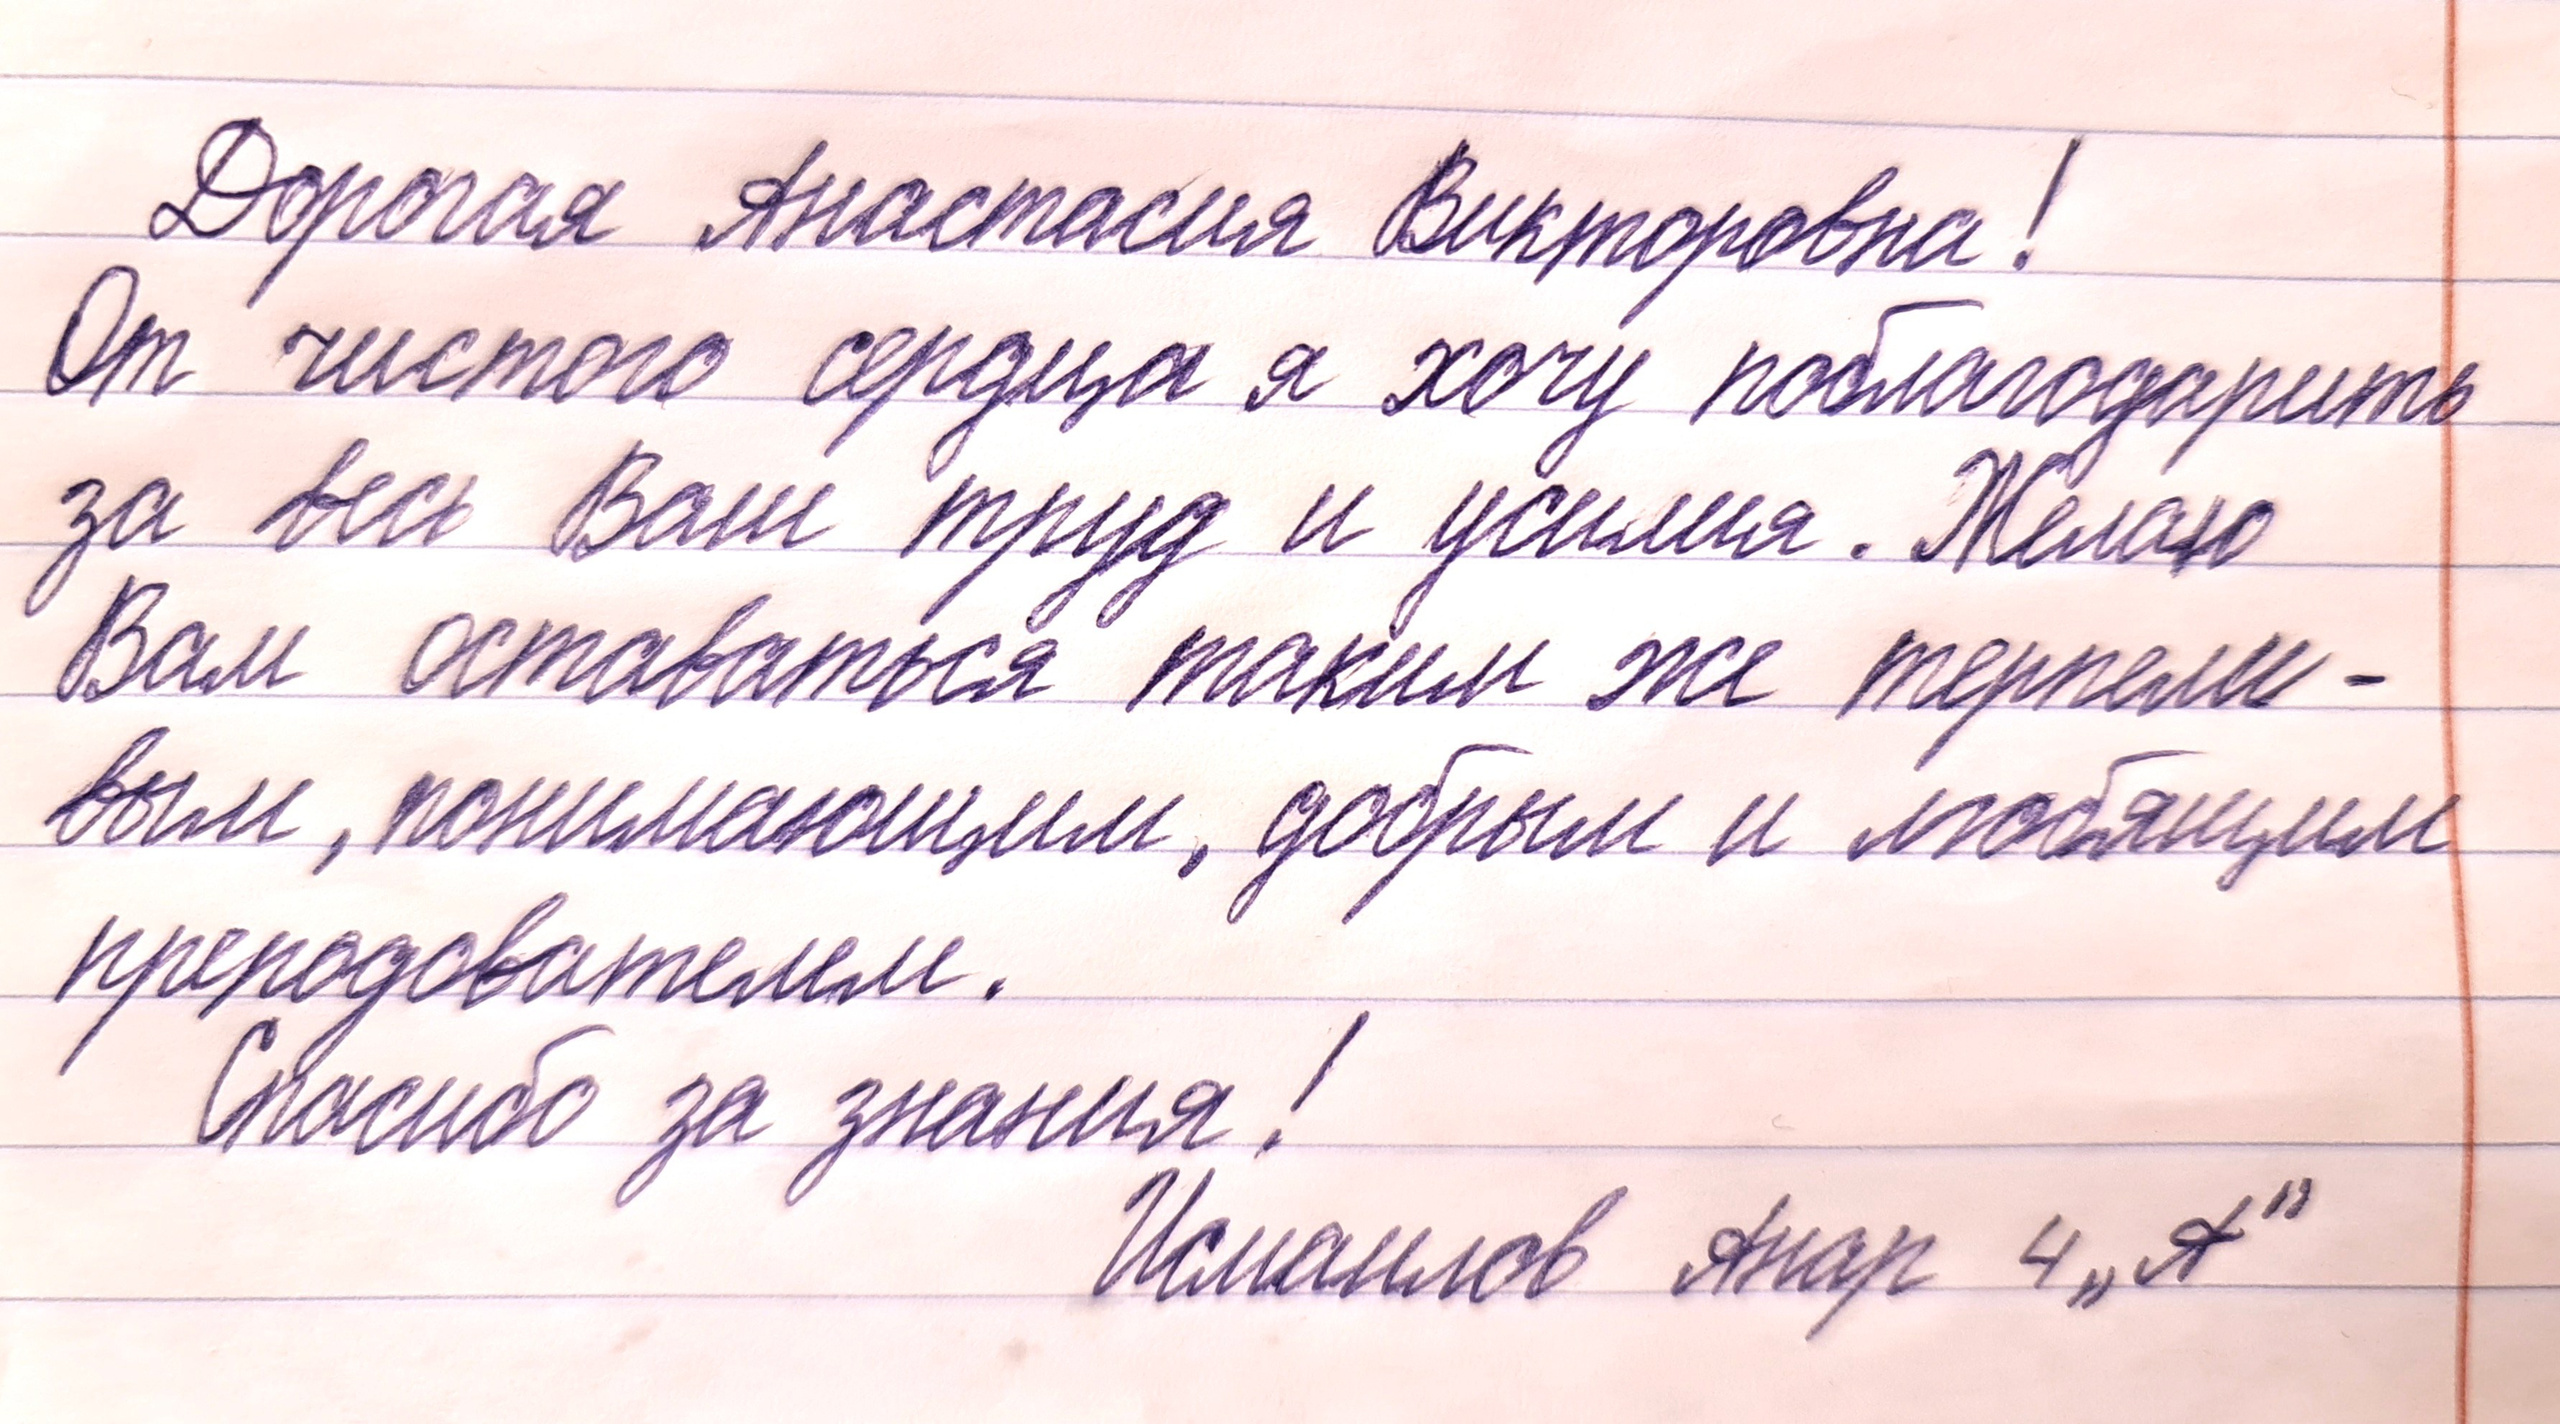 Дорогая Анастасия Викторовна!
От чистого сердца я хочу поблагодарить
за весь Ваш труд и усилия. Желаю
Вам оставаться таким же терпели-
вым, понимающим, добрым и любящим
преподователем.
Спасибо за знания!
Исмаилов Анар 4 „А"